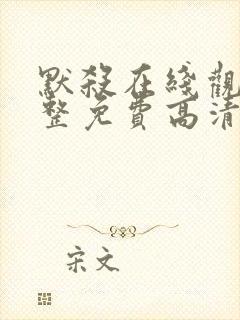 默殺在綫觀
整免費高清
宋文